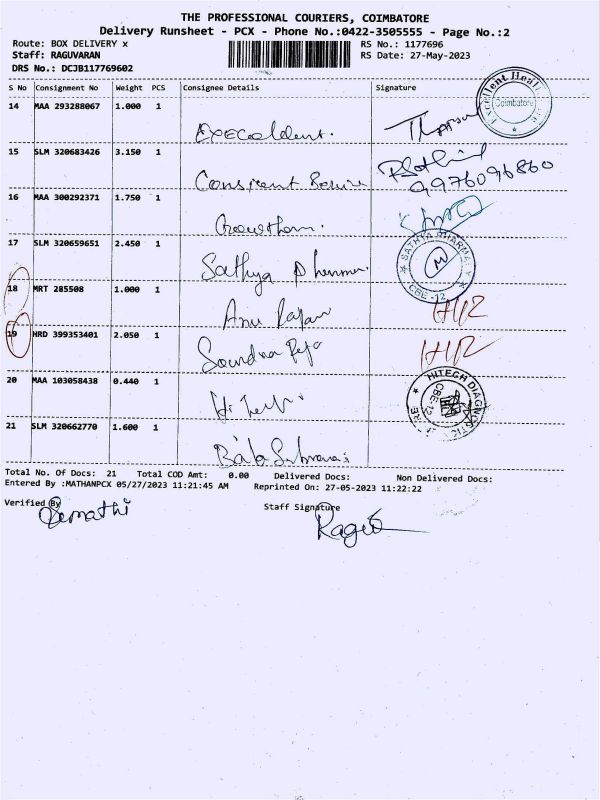 THE PROFESSIONAL COURIERS, COIMBATORE
Delivery Runsheet - PCX - Phone No.:0422-3505555 - Page No.:2
Route: BOX DELIVERY x RS No.: 1177696
Staff: RAGUVARAN RS Date: 27-May-2023
DRS No.: DCJB117769602
S No Consignment No Weight PCS Consignee Details Signature
14 MAA 293288067 1.000 1
Excellent Heal
Coimbatore
15 SLM 320683426 3.150 1
9976096860
16 MAA 300292371 1.750 1
Gowtham.
17 SLM 320659651 2.450 1
Sathya Pharma.
SATHYA PHARMACY
M
CBE-12
18 MRT 285508 1.000 1
Anu Rajan
19 HRD 399353401 2.050 1
Soundra Raja
20 MAA 103058438 0.440 1
Hi tech.
HITECH DIAGNOSTIC
CBE-12
21 SLM 320662770 1.600 1
Total No. Of Docs: 21 Total COD Amt: 0.00 Delivered Docs: Non Delivered Docs:
Entered By :MATHANPCX 05/27/2023 11:21:45 AM Reprinted On: 27-05-2023 11:22:22
Verified By Staff Signature